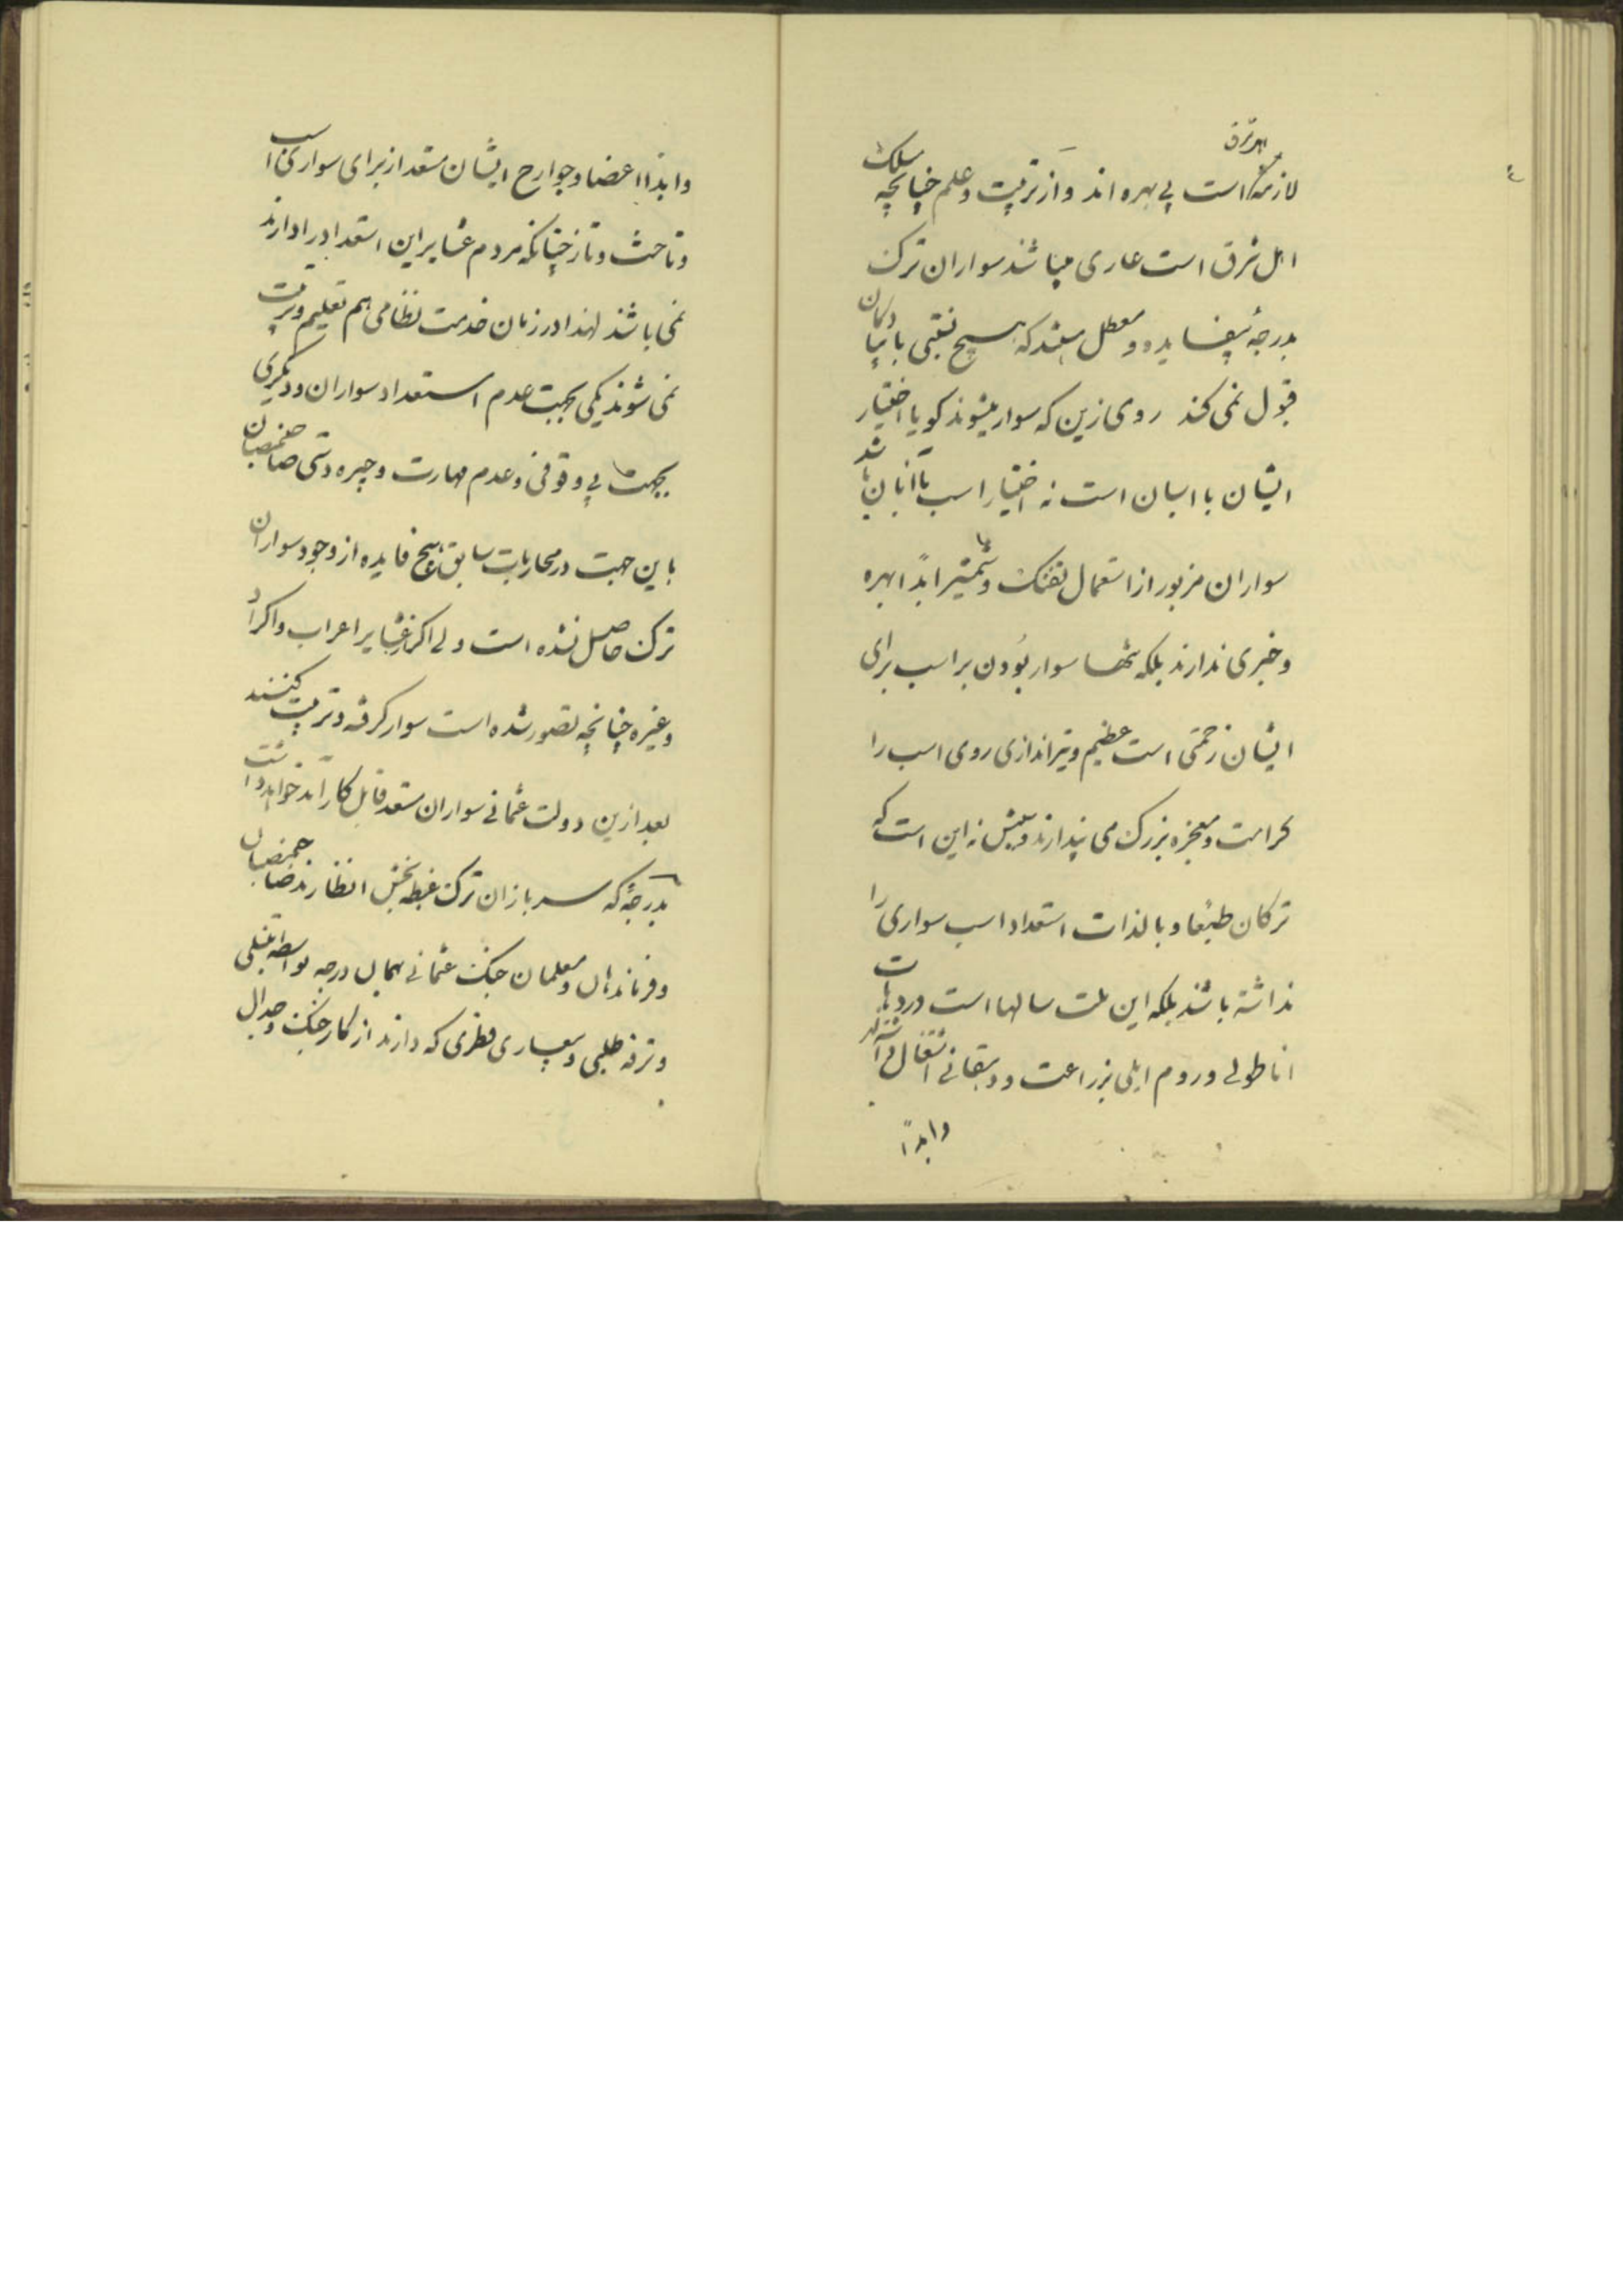 اهل شرق
لازمهٔ است بی بهره اند و از تربیت و علم چنانچه مسلک
اهل شرق است عاری میباشند سواران ترک
بدرجهٔ بیفایده و معطل هستند که هیچ نقبی با بیان
قبول نمی کند روی زین که سوار میشوند کویا اختیار
ایشان با اسبان است نه اختیار اسب با آنان باشد
سواران مزبور از استعمال تفنک و شمشیر ابدًا بهره
و خبری ندارند بلکه تنها سوار بودن بر اسب برای
ایشان زحمتی است عظیم و تیراندازی روی اسب را
کرامت و معجزه بزرک می پندارند و بیش نه این است که
ترکان طبعًا و بالذات استعداد اسب سواری را
نداشته باشند بلکه این ملت سالها است در دهات
اناطولی و روم ایلی بزراعت و دهقانی اشتغال داشته اند
وابدًا
وابدًا اعضا و جوارح ایشان مستعد از برای سواری اسب
و تاخت و تاز چنانکه مردم عشایر این استعداد را دارند
نمی باشند لهذا در زمان خدمت نظامی هم تعلیم و تربیت
نمی شوند یکی بجهت عدم استعداد سواران و دیگری
بجهت بی وقوفی و عدم مهارت و چیره دستی صاحبمنصبان
باین جهت در محاربات سابق هیچ فایده از وجود سواران
ترک حاصل نشده است ولی اکر از عشایر اعراب و اکراد
و غیره چنانچه تصور شده است سوار کرفته و تربیت کنند
بعد ازین دولت عثمانی سواران مستعد قابل کار آمد خواهد داشت
بدرجهٔ که سربازان ترک غبطه بخش انظارند صاحبمنصبان
و فرماندهان و معلمان جنک عثمانی بهمان درجه بواسطه تنبلی
و ترفه طلبی و بیعاری فطری که دارند از کار جنک و جدال